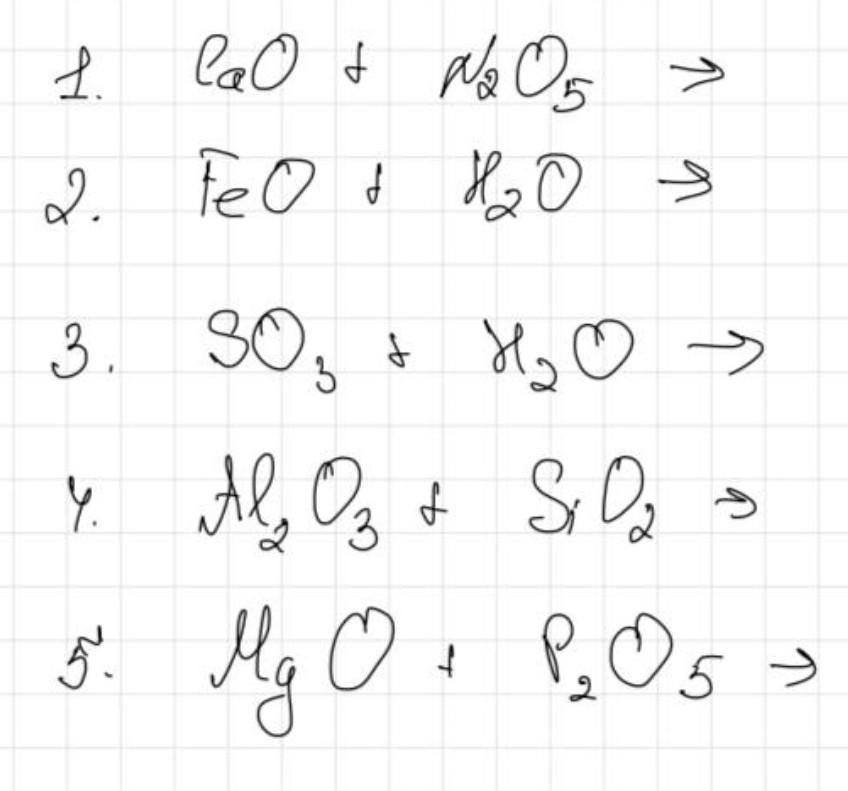 1. CaO + N₂O₅ →
2. FeO + H₂O →
3. SO₃ + H₂O →
4. Al₂O₃ + SiO₂ →
5. MgO + P₂O₅ →